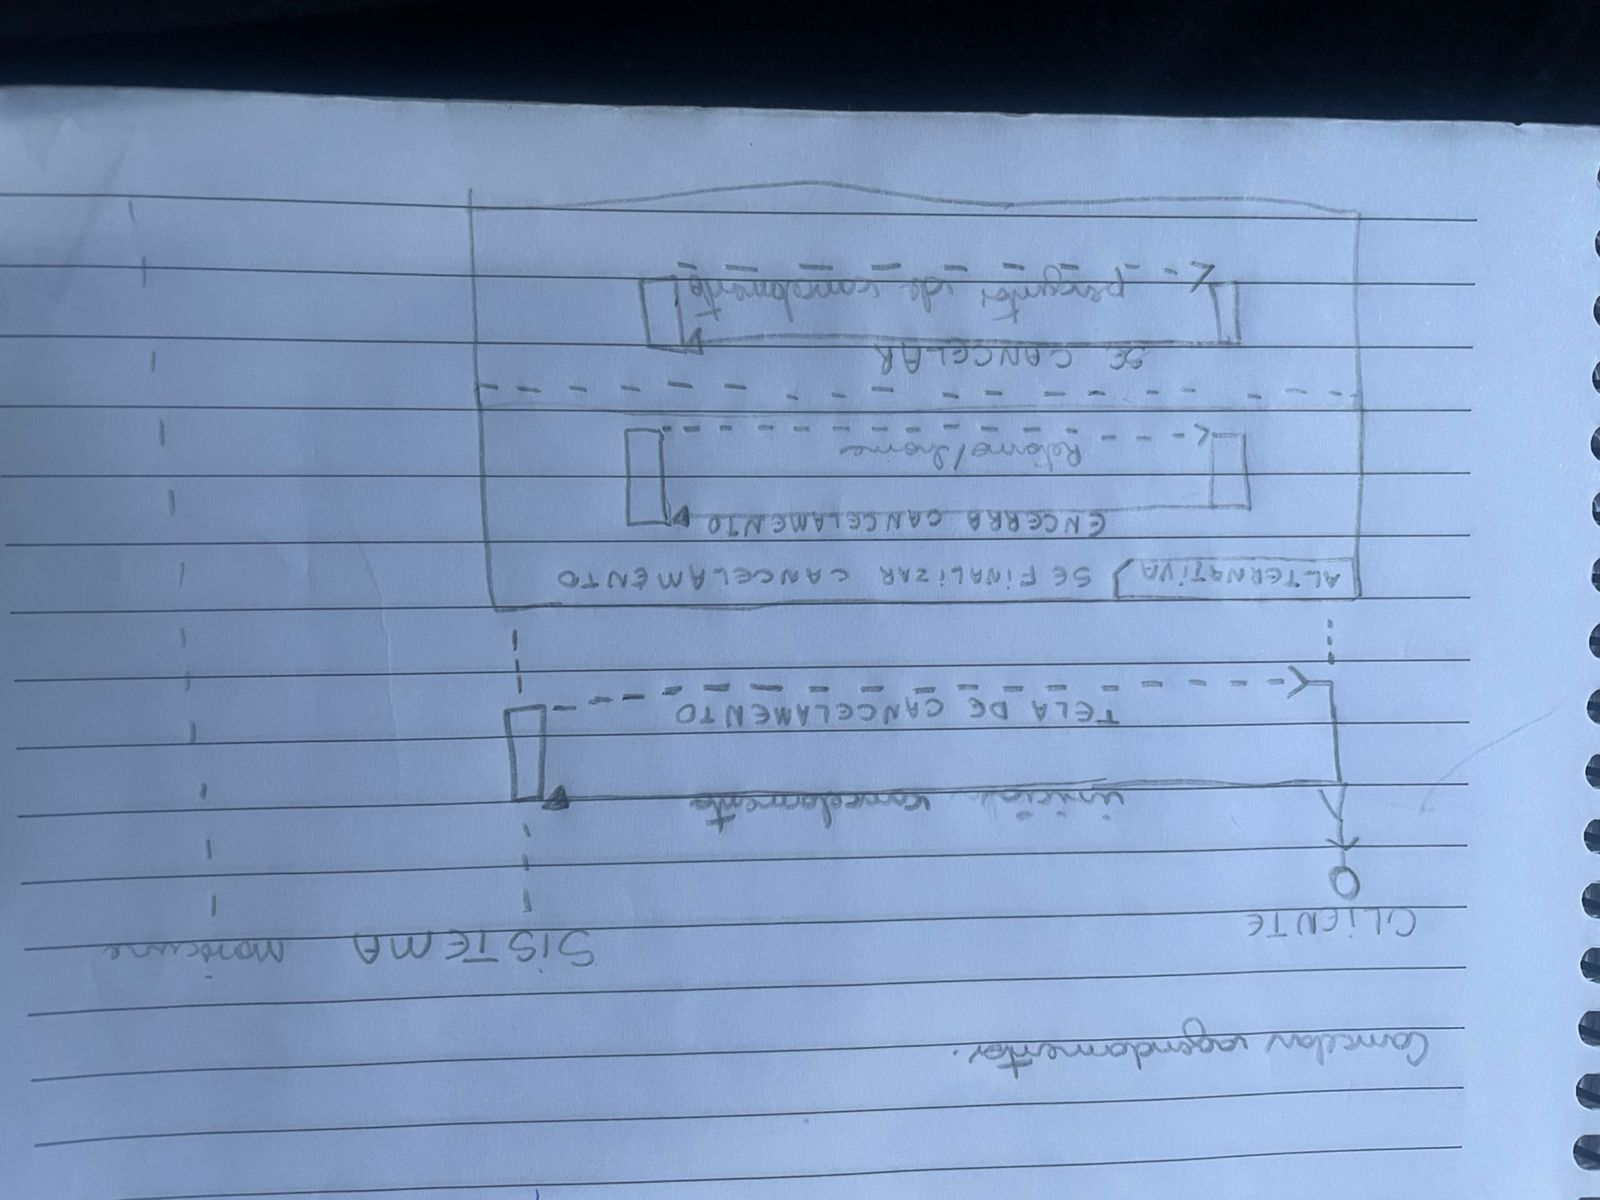 Cancelar agendamento.
CLIENTE SISTEMA Manicure
iniciar cancelamento
TELA DE CANCELAMENTO
ALTERNATIVA SE FINALIZAR CANCELAMENTO
ENCERRA CANCELAMENTO
Retorna/home
SE CANCELAR
perguntar de cancelamento